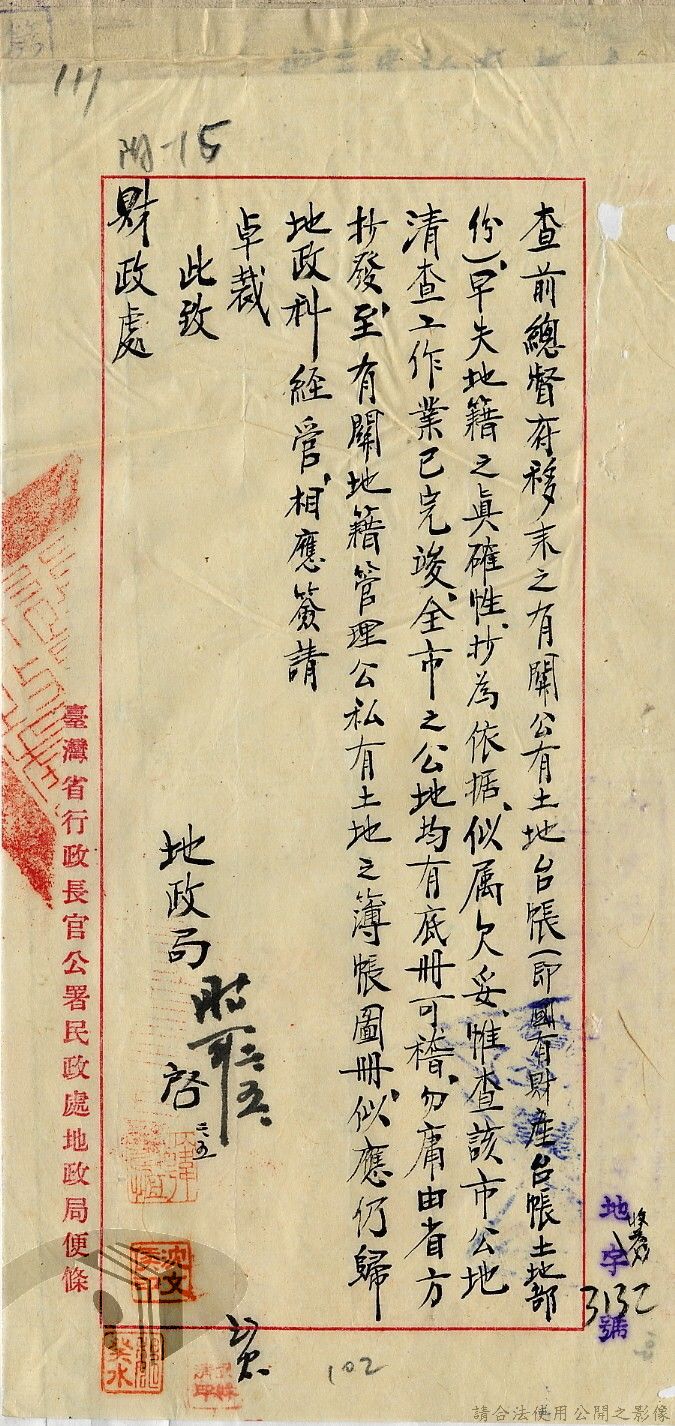 附15
查前總督府移來之有關公有土地台帳(即國有財產台帳土地部
份)、早失地籍之真確性、抄為依据、似属欠妥、惟查該市公地
清查工作業已完竣、全市之公地均有底冊可稽、勿庸由省方
抄發、至有關地籍管理公私有土地之簿帳圖冊、似應仍歸
地政科經管、相應簽請
卓裁
此致
財政處
地政局
啓
二、五
臺灣省行政長官公署民政處地政局便條
地字3132號
沈文
癸水
102
請合法使用公開之影像